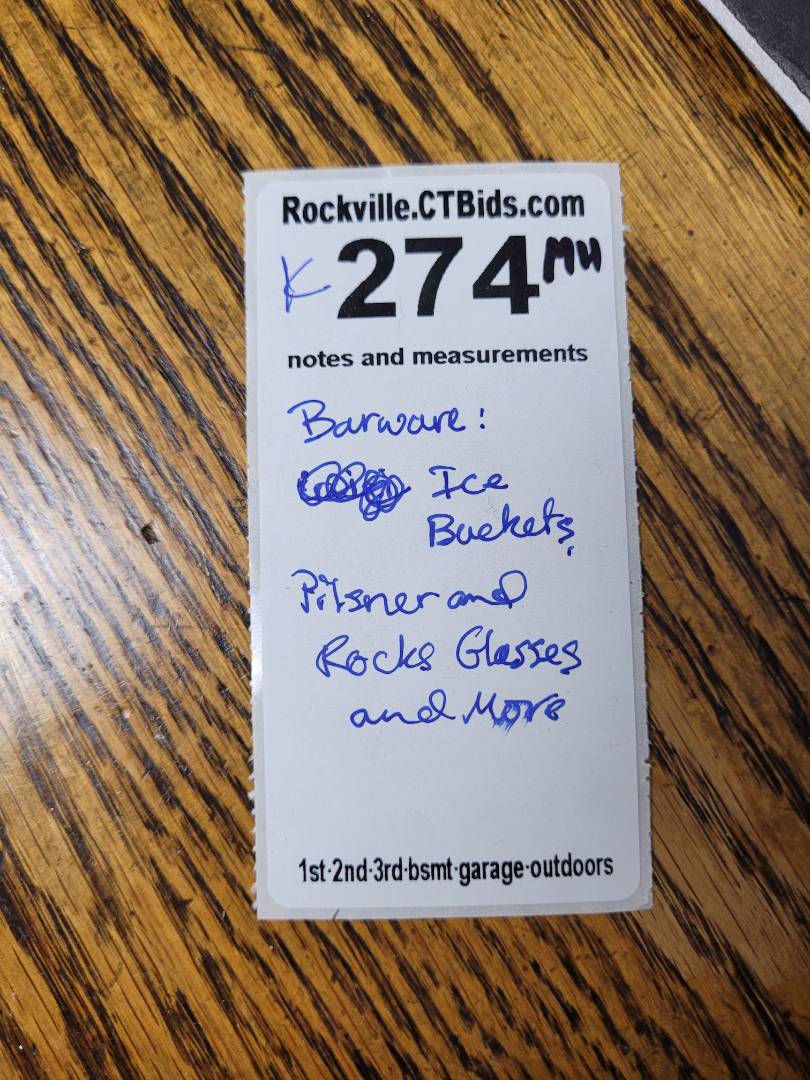 Rockville.CTBids.com
K 274 MH
notes and measurements
Barware:
Ice
Buckets,
Pilsner and
Rocks Glasses
and More
1st·2nd·3rd·bsmt·garage·outdoors